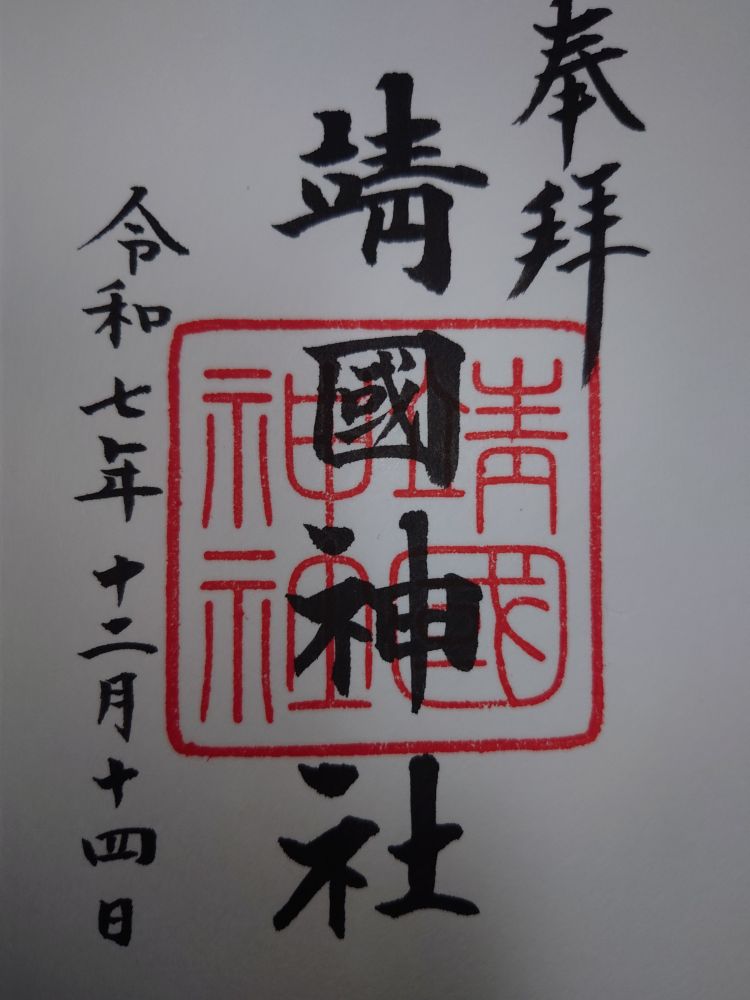 奉拝
靖國神社
靖國
神社
令和七年十二月十四日